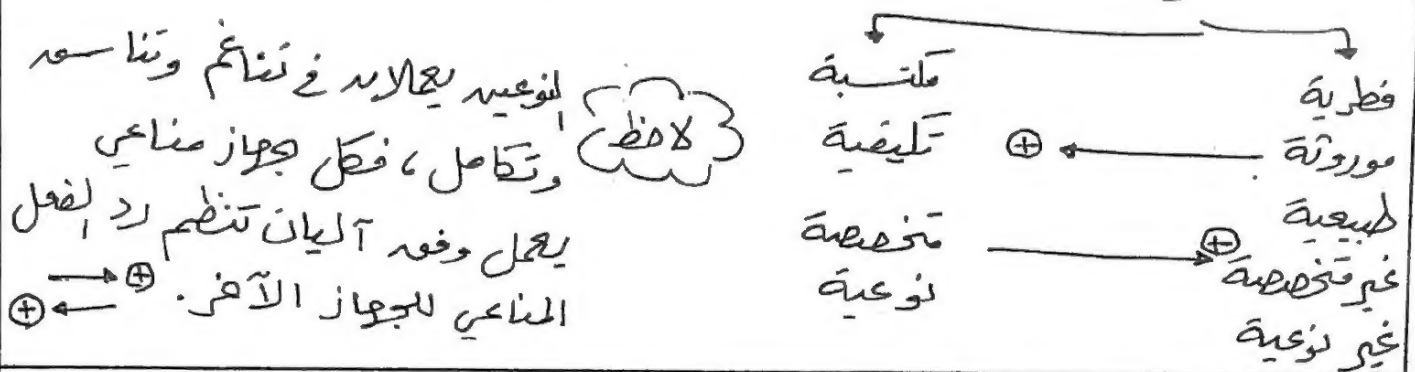 فطرية
موروثة
طبيعية
غير متخصصة
غير نوعية
مكتسبة
تكيفية
متخصصة
نوعية
لاحظ
النوعين يعملان في تناغم وتناسق
وتكامل، فكل جهاز مناعي
يعمل وفق آليات تنظم رد الفعل
المناعي للجهاز الآخر.
⊕
⊕
⊕
⊕